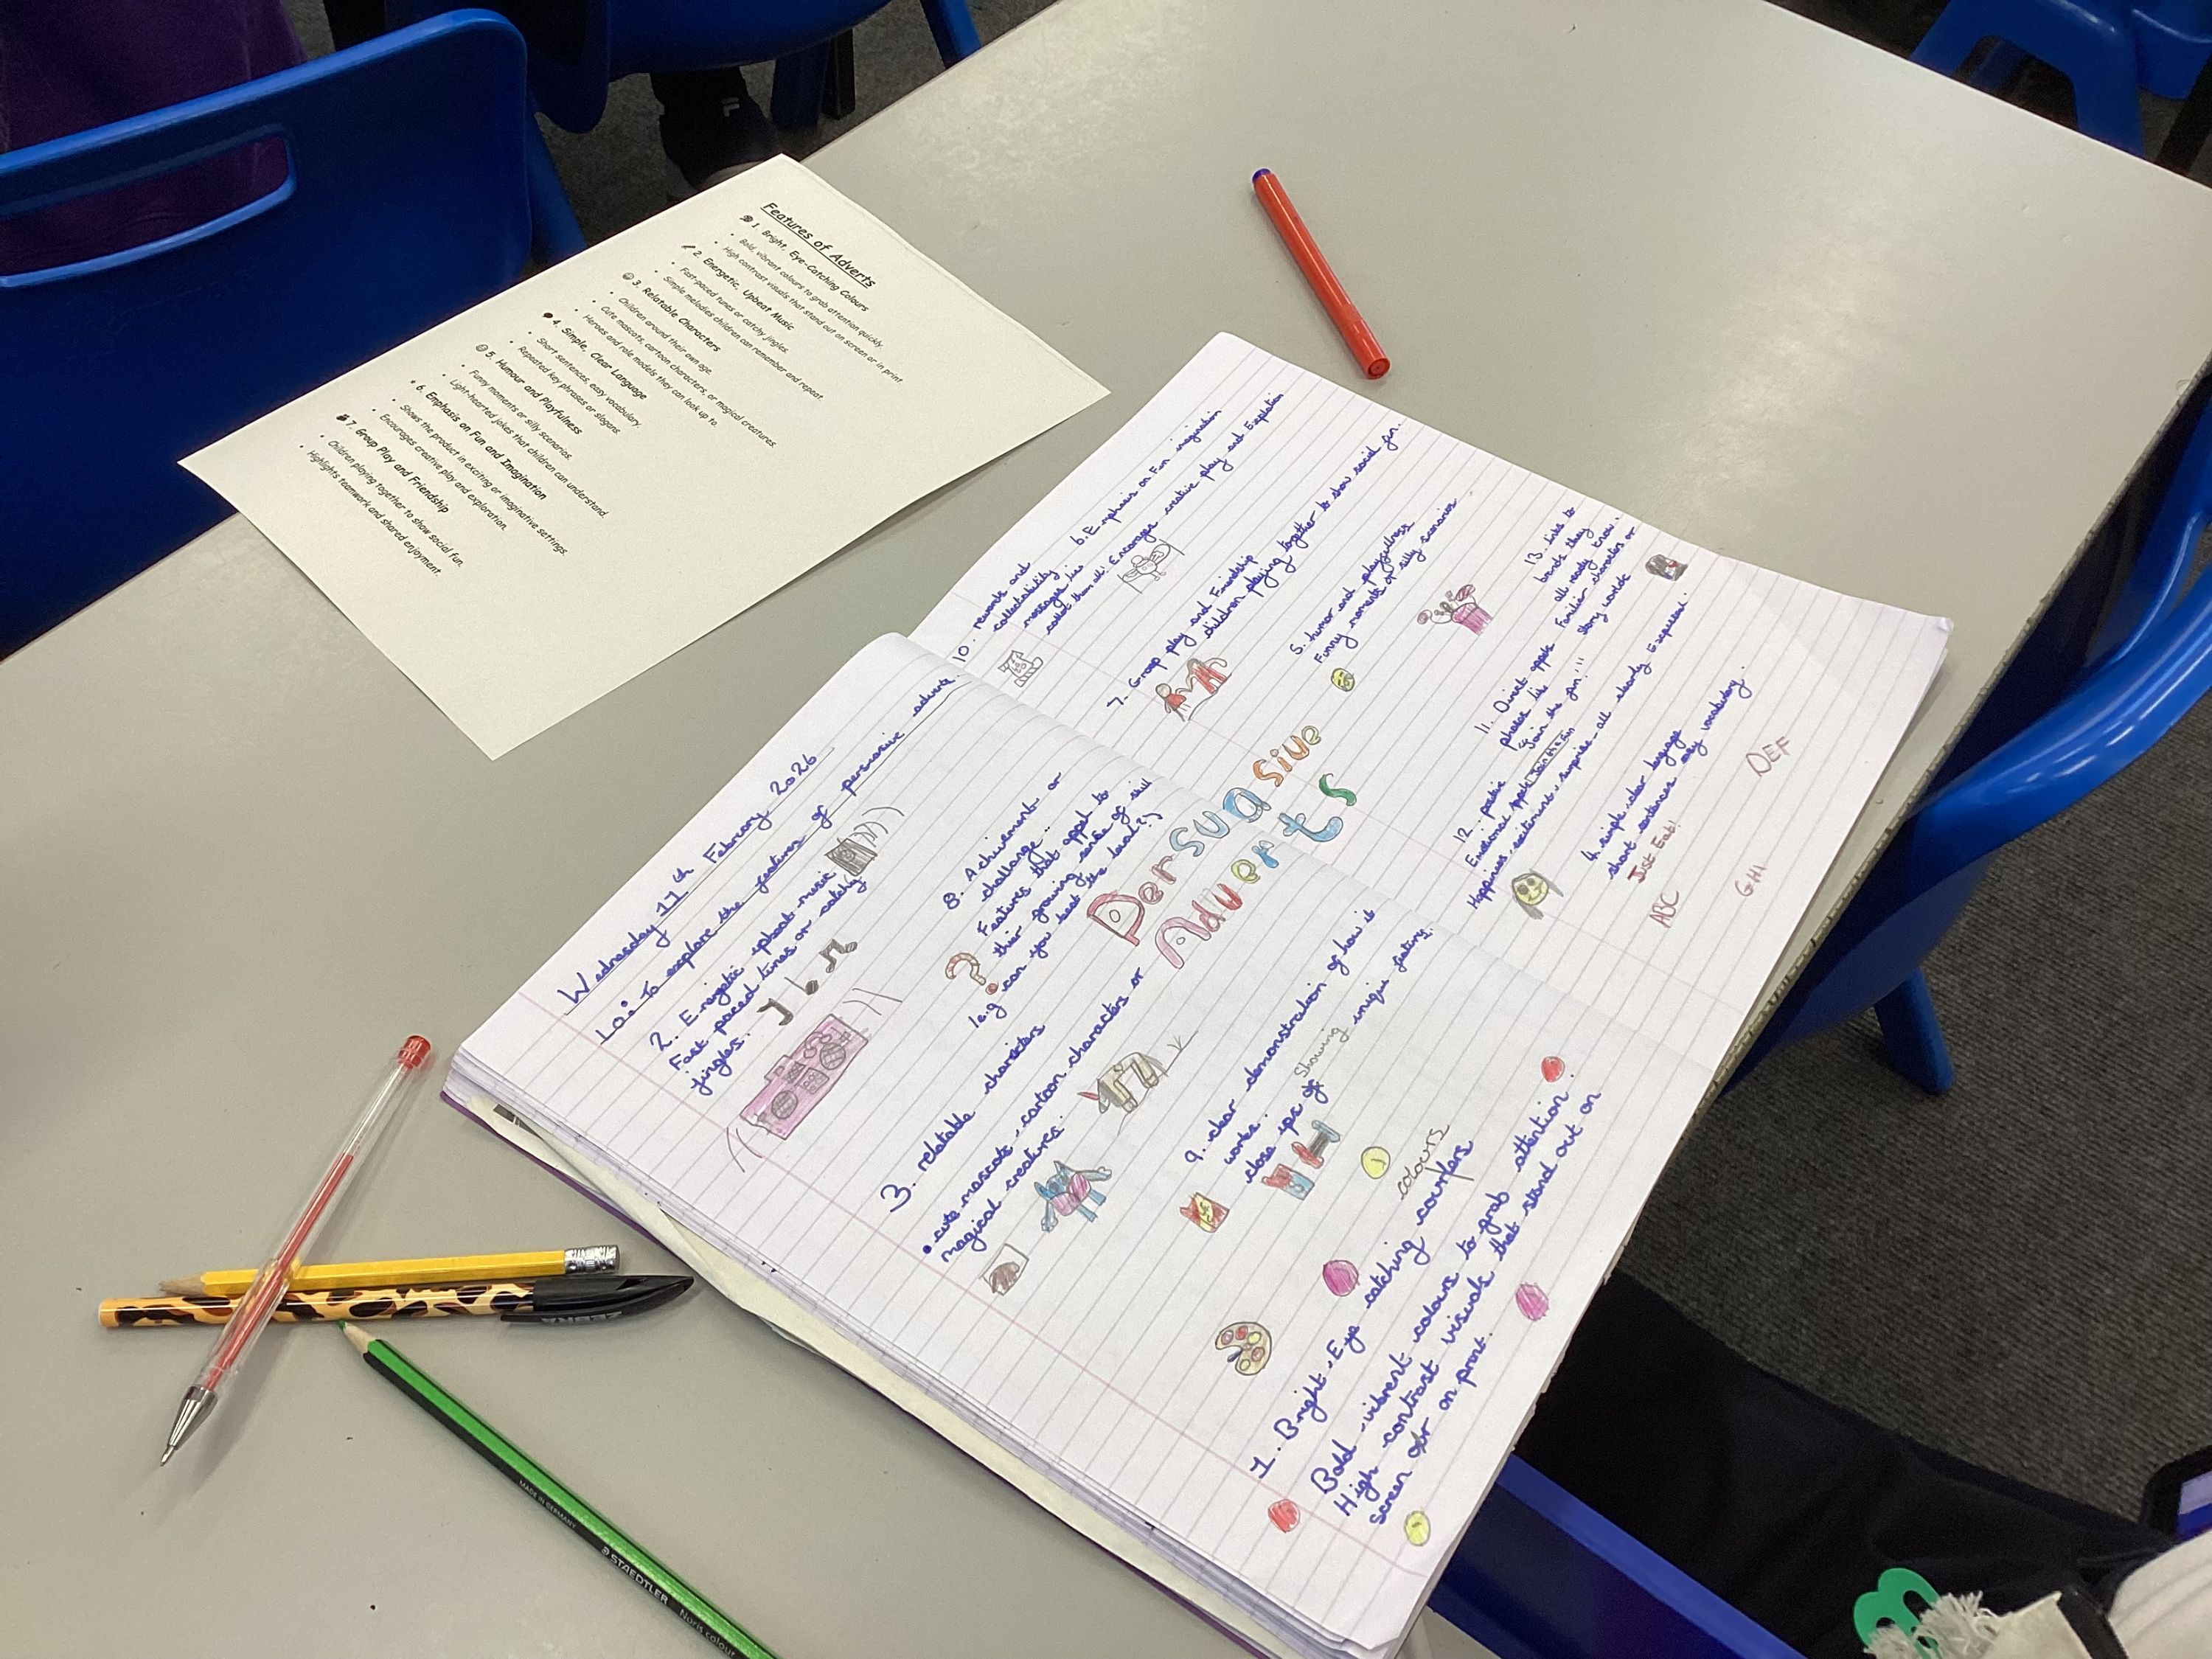 Features of Adverts
1. Bright, Eye-Catching Colours
Bold, vibrant colours to grab attention quickly.
High contrast visuals that stand out on screen or in print
2. Energetic, Upbeat Music
Fast-paced tunes or catchy jingles.
Simple melodies children can remember and repeat.
3. Relatable Characters
Children around their own age.
Cute mascots, cartoon characters, or magical creatures.
Heroes and role models they can look up to.
4. Simple, Clear Language
Short sentences, easy vocabulary.
Repeated key phrases or slogans.
5. Humour and Playfulness
Funny moments or silly scenarios.
Light-hearted jokes that children can understand.
6. Emphasis on Fun and Imagination
Shows the product in exciting or imaginative settings.
Encourages creative play and exploration.
7. Group Play and Friendship
Children playing together to show social fun.
Highlights teamwork and shared enjoyment.
Wednesday 11th February 2026
Lo: To explore the features of persuasive adverts.
2. Energetic upbeat music
Fast paced tunes or catchy
jingles.
8. Achivement or
challange..
Features that appel to
thier growing sense of skill
(e.g can you beat the level?)
3. relatable charicters
cute mascots, cartoon characters or
magical creatures.
9. clear demonstration of how it
works.
close ups of Showing unique
Persuasive
Adverts
colours
1. Bright, Eye catching
Bold, vibrent colours to grab attention.
High contrast visuals that stand out on
screen or on
10. rewards and
collectability
message like
collect them all!
6. Emphasis on Fun imagination
Encourage creative play and
7. Group play and Friendship
children playing together to show social fun.
5. humor and playfulness
Funny moments or silly scenarios
13. links to
brands they
all ready know.
Familier characters or
story worlds
11. Direct
phrases like
"Join the fun!"
12.
Emotional
Join the fun
Happiness, exitement, surprise all clearly
4. simple, clear language
short sentences easy vocabulary.
Just Eat!
ABC
DEF
GHI
MADE IN GERMANY
STAEDTLER Noris colour